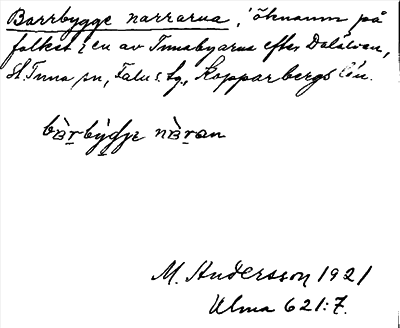 Barrbygge narrarna, öknamn på
folket i en av Tunabyarna efter Dalälven,
St. Tuna sn, Falu s. fg., Kopparbergs län.
bàrbýgge nàran
M. Andersson 1921
Ulma 621:7.